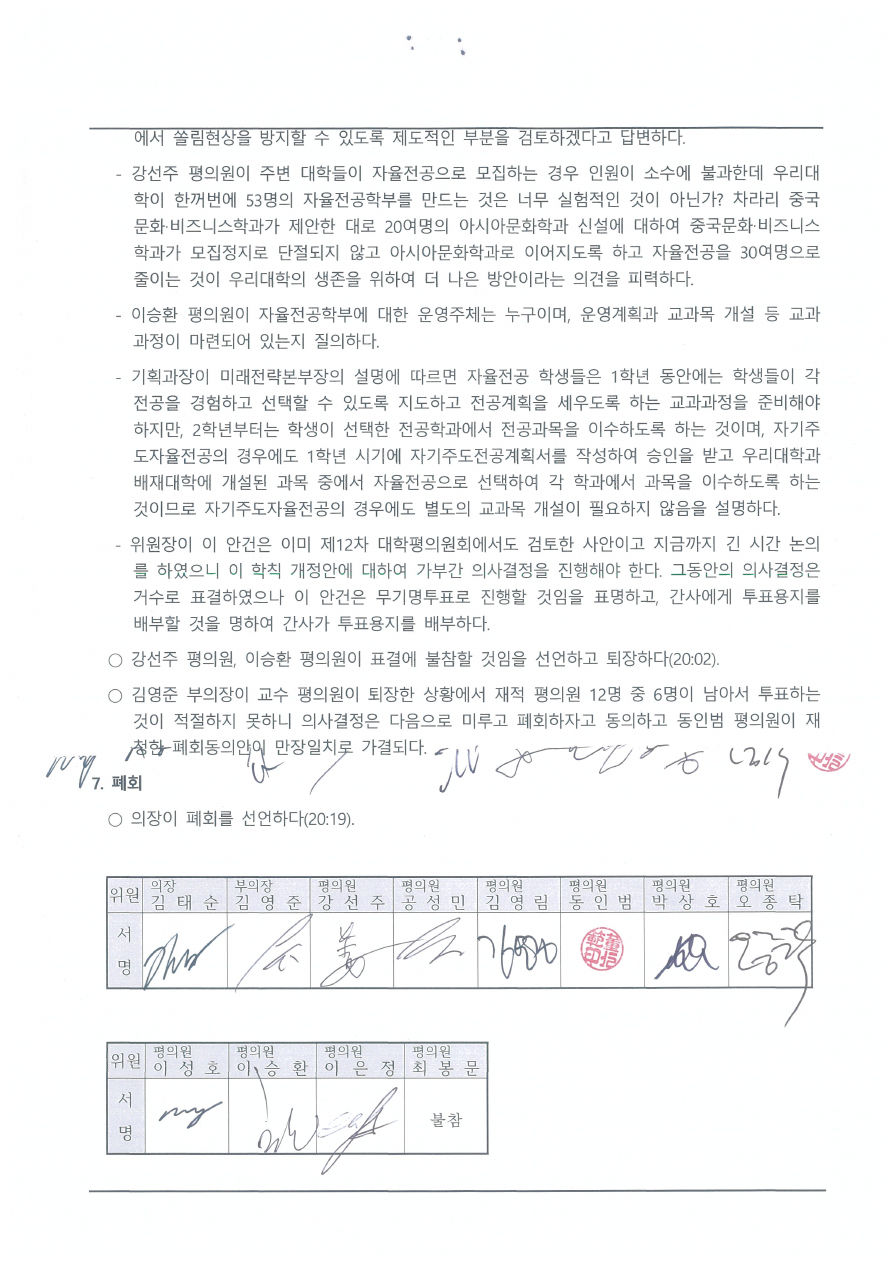 에서 쏠림현상을 방지할 수 있도록 제도적인 부분을 검토하겠다고 답변하다.
- 강선주 평의원이 주변 대학들이 자율전공으로 모집하는 경우 인원이 소수에 불과한데 우리대
학이 한꺼번에 53명의 자율전공학부를 만드는 것은 너무 실험적인 것이 아닌가? 차라리 중국
문화·비즈니스학과가 제안한 대로 20여명의 아시아문화학과 신설에 대하여 중국문화·비즈니스
학과가 모집정지로 단절되지 않고 아시아문화학과로 이어지도록 하고 자율전공을 30여명으로
줄이는 것이 우리대학의 생존을 위하여 더 나은 방안이라는 의견을 피력하다.
- 이승환 평의원이 자율전공학부에 대한 운영주체는 누구이며, 운영계획과 교과목 개설 등 교과
과정이 마련되어 있는지 질의하다.
- 기획과장이 미래전략본부장의 설명에 따르면 자율전공 학생들은 1학년 동안에는 학생들이 각
전공을 경험하고 선택할 수 있도록 지도하고 전공계획을 세우도록 하는 교과과정을 준비해야
하지만, 2학년부터는 학생이 선택한 전공학과에서 전공과목을 이수하도록 하는 것이며, 자기주
도자율전공의 경우에도 1학년 시기에 자기주도전공계획서를 작성하여 승인을 받고 우리대학과
배재대학에 개설된 과목 중에서 자율전공으로 선택하여 각 학과에서 과목을 이수하도록 하는
것이므로 자기주도자율전공의 경우에도 별도의 교과목 개설이 필요하지 않음을 설명하다.
- 위원장이 이 안건은 이미 제12차 대학평의원회에서도 검토한 사안이고 지금까지 긴 시간 논의
를 하였으니 이 학칙 개정안에 대하여 가부간 의사결정을 진행해야 한다. 그동안의 의사결정은
거수로 표결하였으나 이 안건은 무기명투표로 진행할 것임을 표명하고, 간사에게 투표용지를
배부할 것을 명하여 간사가 투표용지를 배부하다.
○ 강선주 평의원, 이승환 평의원이 표결에 불참할 것임을 선언하고 퇴장하다(20:02).
○ 김영준 부의장이 교수 평의원이 퇴장한 상황에서 재적 평의원 12명 중 6명이 남아서 투표하는
것이 적절하지 못하니 의사결정은 다음으로 미루고 폐회하자고 동의하고 동인범 평의원이 재
청한 폐회동의안이 만장일치로 가결되다.
7. 폐회
○ 의장이 폐회를 선언하다(20:19).
위원 의장 부의장 평의원 평의원 평의원 평의원 평의원 평의원
김태순 김영준 강선주 공성민 김영림 동인범 박상호 오종탁
서명
위원 평의원 평의원 평의원 평의원
이성호 이승환 이은정 최봉문
서명 불참